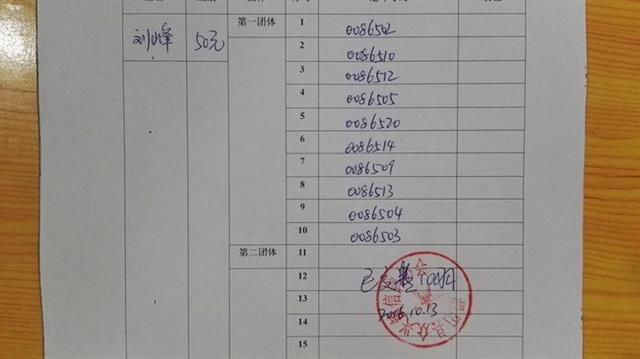 第一团体 1 0086502
刘峰 50元 2 0086510
3 0086512
4 0086505
5 0086520
6 0086514
7 0086509
8 0086513
9 0086504
10 0086503
第二团体 11
12
13
2016.10.13
14
15